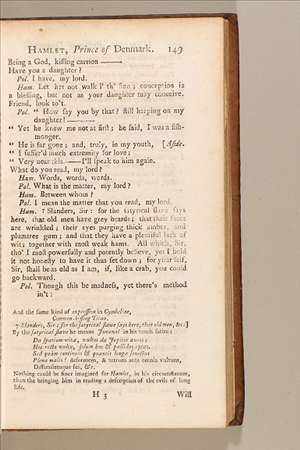 HAMLET, Prince of Denmark. 149
Being a God, kiſſing carrion ———
Have you a daughter?
Pol. I have, my lord.
Ham. Let her not walk i' th' Sun; conception is
a bleſſing, but not as your daughter may conceive.
Friend, look to't.
Pol. " How ſay you by that? ſtill harping on my
daughter! ———
" Yet he knew me not at firſt; he ſaid, I was a fiſh-
monger.
" He is far gone; and, truly, in my youth, [Aſide.
" I ſuffer'd much extremity for love;
" Very near this. — I'll ſpeak to him again.
What do you read, my lord?
Ham. Words, words, words.
Pol. What is the matter, my lord?
Ham. Between whom?
Pol. I mean the matter that you read, my lord.
Ham. 7 Slanders, Sir: for the ſatyrical ſlave ſays
here, that old men have grey beards; that their faces
are wrinkled; their eyes purging thick amber, and
plumtree gum; and that they have a plentiful lack of
wit; together with moſt weak hams. All which, Sir,
tho' I moſt powerfully and potently believe, yet I hold
it not honeſty to have it thus ſet down; for your ſelf,
Sir, ſhall be as old as I am, if, like a crab, you could
go backward.
Pol. Though this be madneſs, yet there's method
in't:
And the ſame kind of expreſſion in Cymbeline,
Common-kiſſing Titan.
7 Slanders, Sir; for the ſatyrical ſlave ſays here, that old men, &c.]
By the ſatyrical ſlave he means Juvenal in his tenth ſatire:
Da ſpatium vitæ, multos da Jupiter annos:
Hoc recto vultu, ſolum hoc & pallidus optas.
Sed quàm continuis & quantis longa ſenectus
Plena malis! deformem, & tetrum ante omnia vultum,
Diſſimilemque ſui, &c.
Nothing could be finer imagined for Hamlet, in his circumſtances,
than the bringing him in reading a deſcription of the evils of long
life.
H 3 Will